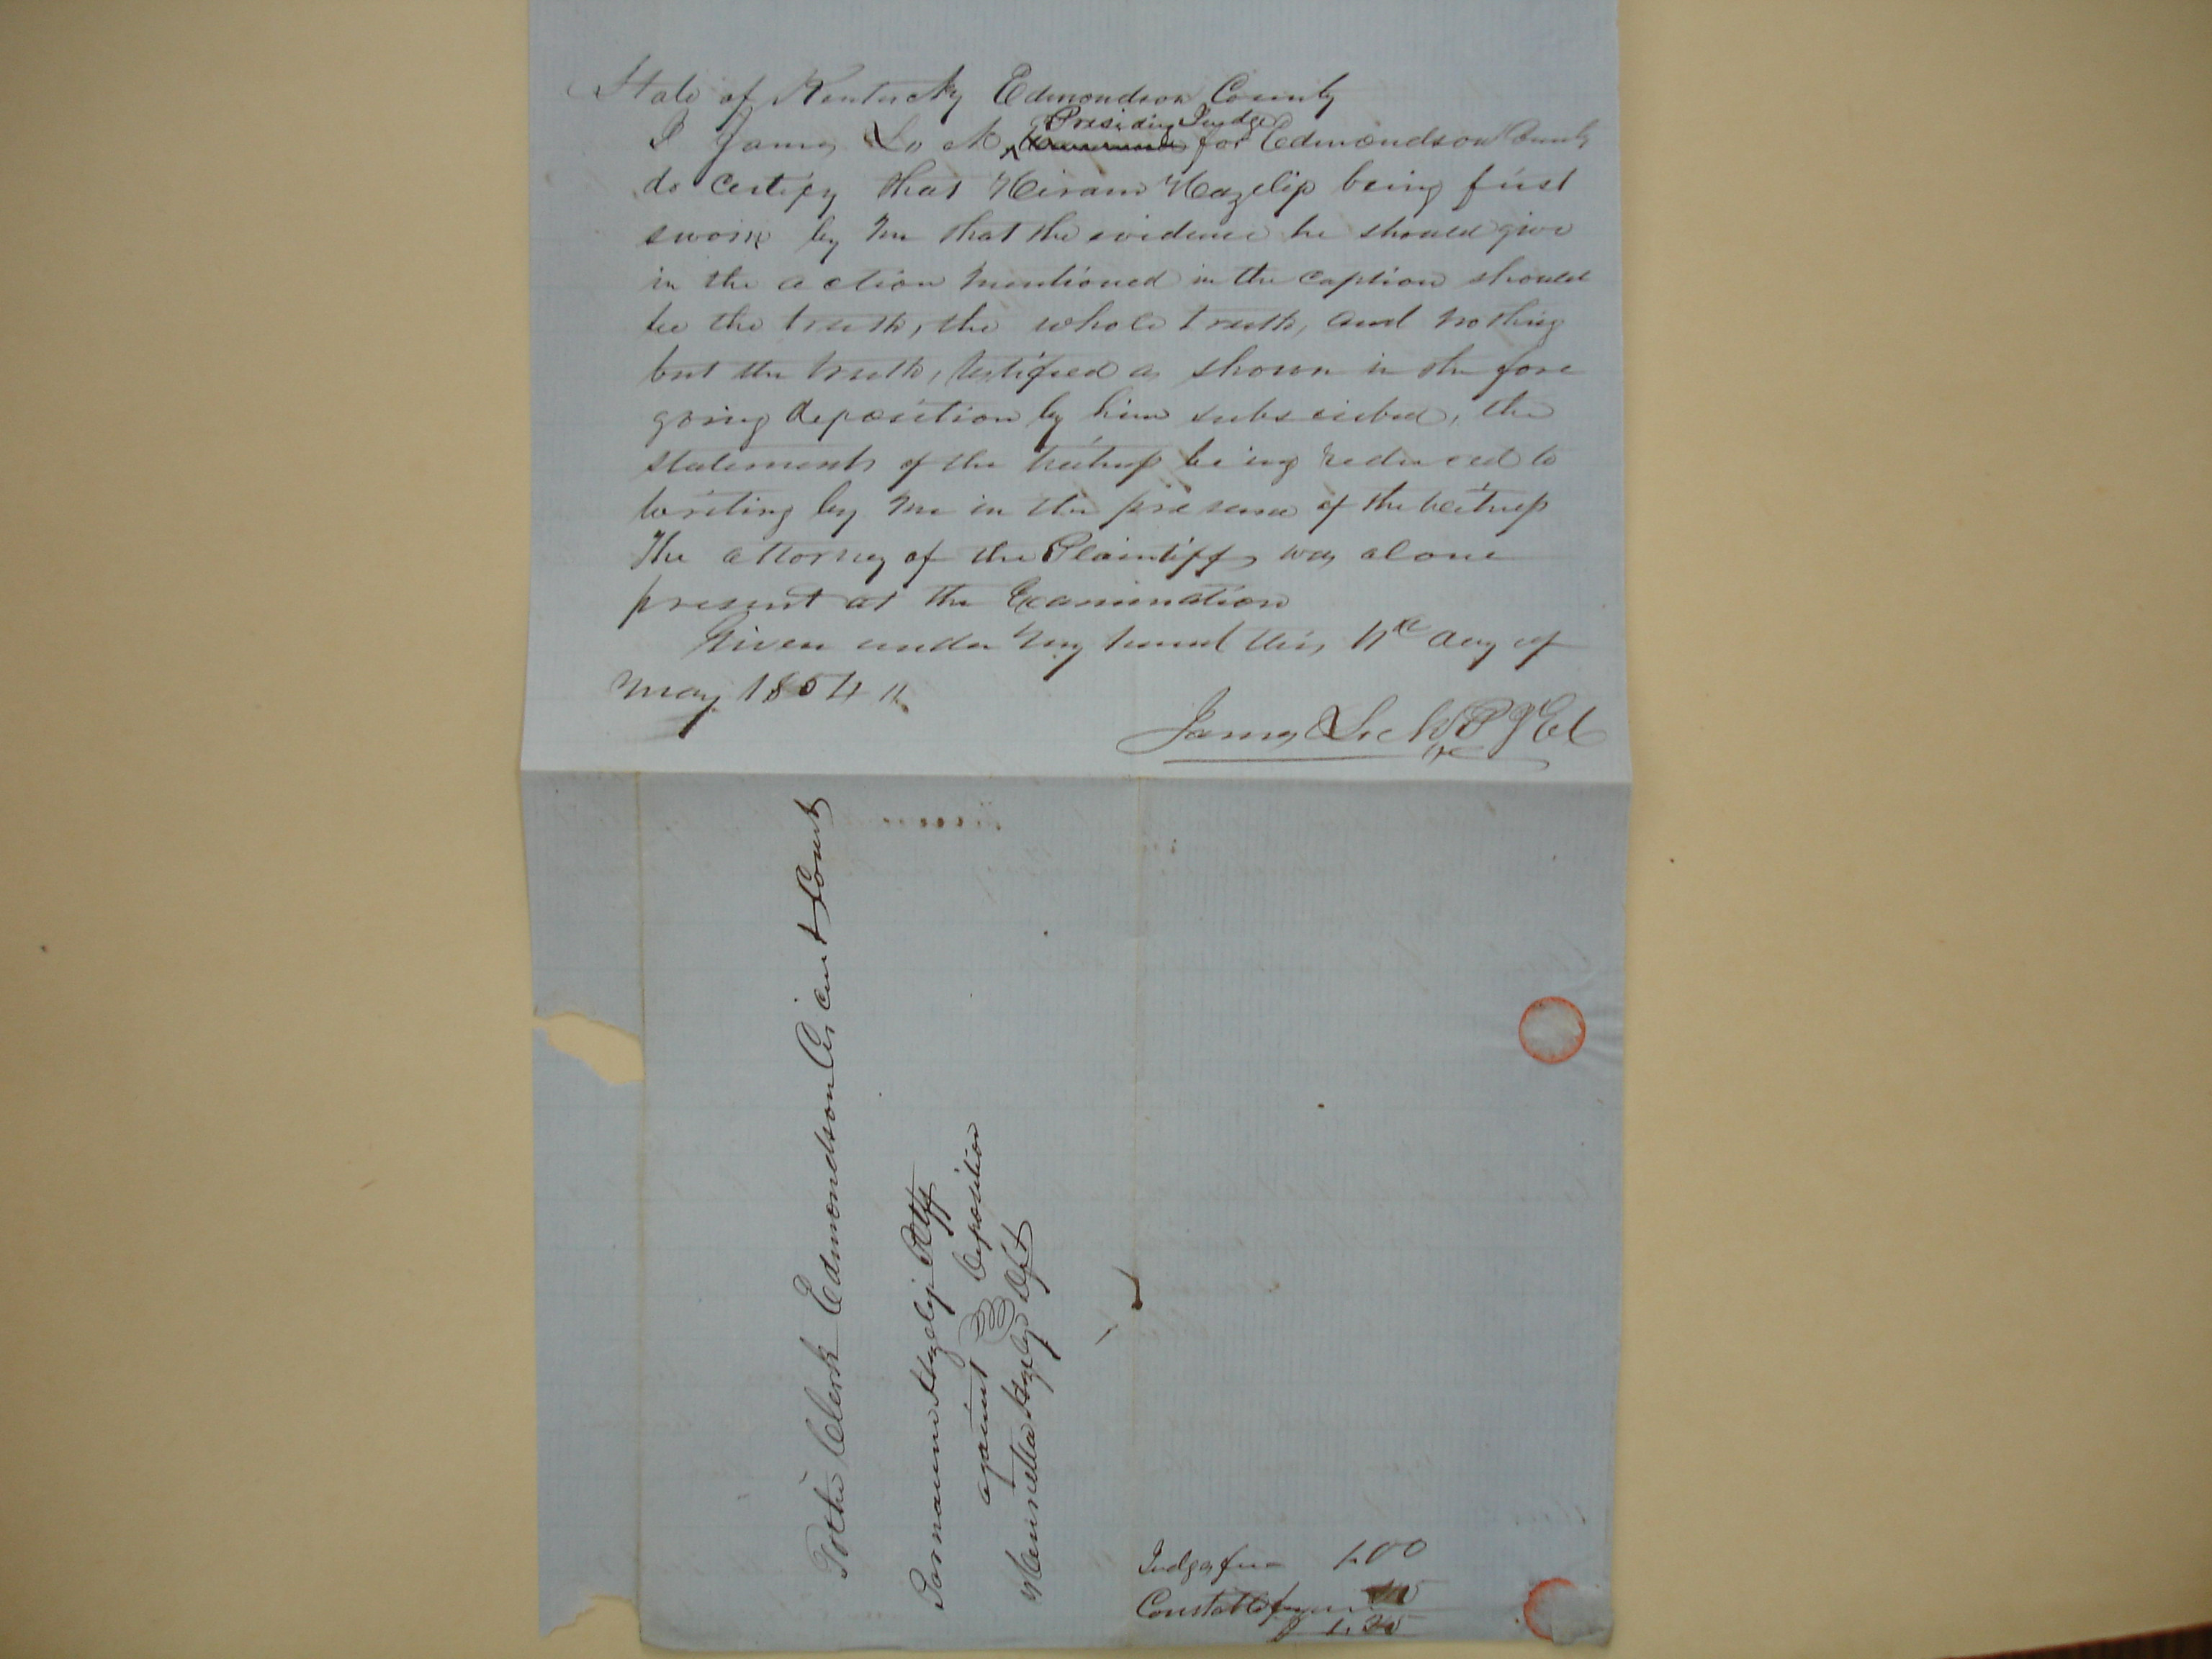 State of Kentucky Edmondson County
Presiding Judge
I James L. for Edmondson County
do certify that Hiram Hazelip being first
sworn by me that the evidence he should give
in the action mentioned in the caption should
be the truth, the whole truth, and nothing
but the truth, testified as shown in the fore
going deposition by him subscribed, the
statements of the witness being reduced to
writing by me in the presence of the witness
The attorney of the Plaintiff was alone
present at the Examination
Given under my hand this 11th day of
May 1854
James
To the Clerk Edmondson Circuit Court
Hazelip Pltff
against Deposition
Hazelip Dft
Judges fee 1.00
Constable fee 25
$ 1.25